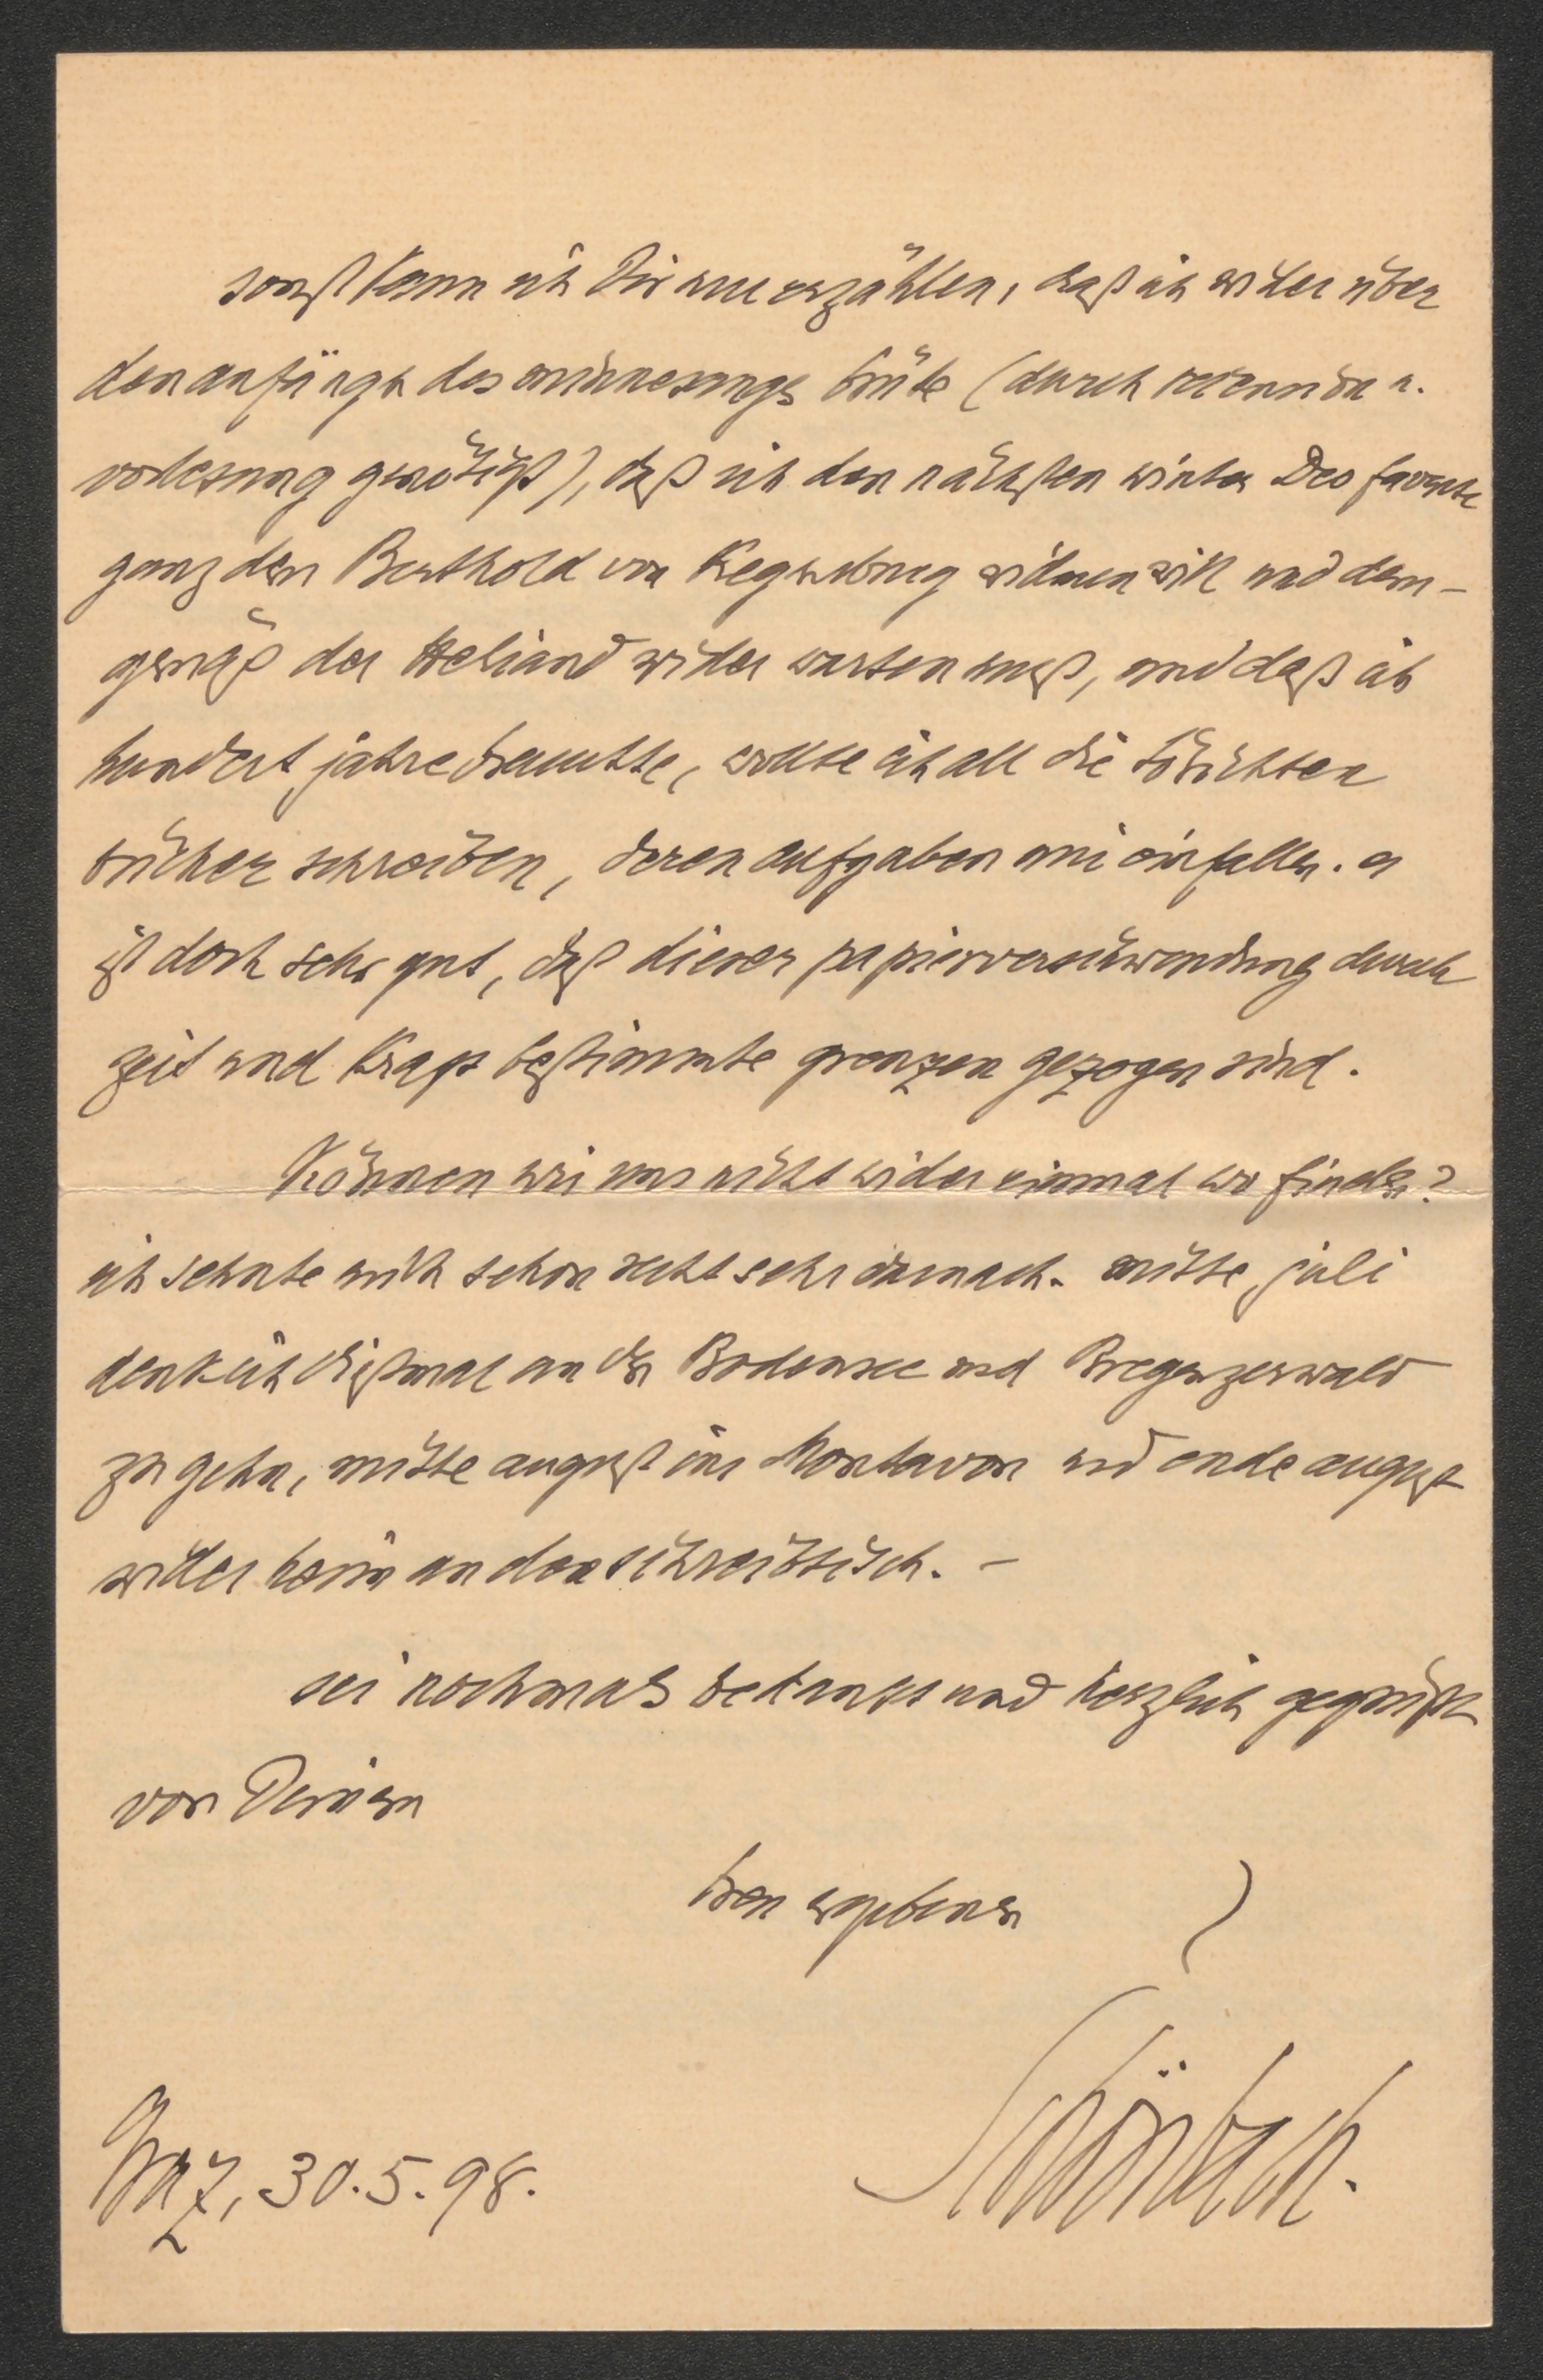 sonst kann ich Dir nur erzählen, daß ich wider über
den anfängen des minnesangs brüte (durch recension u.
vorlesung genötigt), daß ich den nächsten winter Deo favente
ganz dem Berthold von Regensburg widmen will und dem-
gemäß der Heliand wider warten muß, und daß ich
hundert jahre brauchte, wollte ich all die törichten
bücher schreiben, deren aufgaben mir einfallen. es
ist doch sehr gut, daß dieser papierverschwendung durch
zeit und kraft bestimmte grenzen gezogen sind.
Können wir uns nicht wider einmal wo finden?
ich sehnte mich schon recht sehr darnach. mitte juli
denk ich dißmal an den Bodensee und Bregenzerwald
zu gehn, mitte august ins Montavon und ende august
wider heim an den schreibtisch. –
sei nochmals bedankt und herzlich gegrüßt
von Deinem
treu ergebenen
Schönbach.
Graz, 30.5.98.